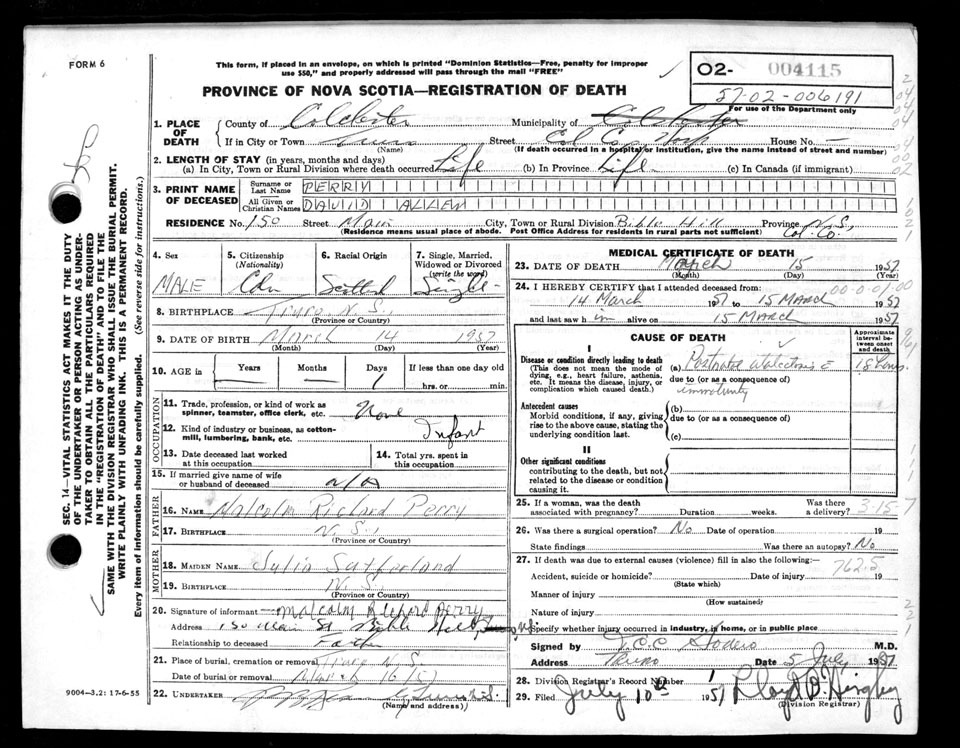 FORM 6
This form, if placed in an envelope, on which is printed "Dominion Statistics—Free, penalty for improper
use $50," and properly addressed will pass through the mail "FREE"
PROVINCE OF NOVA SCOTIA—REGISTRATION OF DEATH
O2- 004115
57-02-006191
For use of the Department only
1. PLACE OF DEATH County of Colchester Municipality of Colchester
If in City or Town Truro Street Col Co Hosp House No. —
(Name) (If death occurred in a hospital or institution, give the name instead of street and number)
2. LENGTH OF STAY (in years, months and days)
(a) In City, Town or Rural Division where death occurred Life (b) In Province Life (c) In Canada (if immigrant)
3. PRINT NAME OF DECEASED Surname or Last Name PERRY
All Given or Christian Names DAVID ALLEN
RESIDENCE No. 150 Street Main City, Town or Rural Division Bible Hill Province N.S.
(Residence means usual place of abode. Post Office Address for residents in rural parts not sufficient) Col. Co.
4. Sex MALE
5. Citizenship (Nationality) Cdn
6. Racial Origin Scotland
7. Single, Married, Widowed or Divorced (write the word) Single
8. BIRTHPLACE Truro N.S.
(Province or Country)
9. DATE OF BIRTH March 14 1957
(Month) (Day) (Year)
10. AGE in Years — Months — Days 1 If less than one day old
hrs. or min.
OCCUPATION
11. Trade, profession, or kind of work as spinner, teamster, office clerk, etc. None
12. Kind of industry or business, as cotton-mill, lumbering, bank, etc. Infant
13. Date deceased last worked at this occupation
14. Total yrs. spent in this occupation
15. If married give name of wife or husband of deceased n/a
FATHER
16. NAME Malcolm Richard Perry
17. BIRTHPLACE N.S.
(Province or Country)
MOTHER
18. MAIDEN NAME Julia Sutherland
19. BIRTHPLACE N.S.
(Province or Country)
20. Signature of informant Malcolm Richard Perry
Address 150 Main St Bible Hill
Relationship to deceased Father
21. Place of burial, cremation or removal Truro N.S.
Date of burial or removal March 16/57
22. UNDERTAKER
(Name and address)
MEDICAL CERTIFICATE OF DEATH
23. DATE OF DEATH March 15 1957
(Month) (Day) (Year)
24. I HEREBY CERTIFY that I attended deceased from:
14 March 1957 to 15 March 1957
and last saw him alive on 15 March 1957
CAUSE OF DEATH
Approximate interval between onset and death
I
Disease or condition directly leading to death (a) Postnatal Atelectasis 18 hours
(This does not mean the mode of dying, e.g., heart failure, asthenia, etc. It means the disease, injury, or complication which caused death.)
due to (or as a consequence of)
immaturity
Antecedent causes (b)
Morbid conditions, if any, giving rise to the above cause, stating the underlying condition last.
due to (or as a consequence of)
(c)
II
Other significant conditions
contributing to the death, but not related to the disease or condition causing it.
25. If a woman, was the death associated with pregnancy? Duration weeks. Was there a delivery? 3-15-7
26. Was there a surgical operation? No Date of operation 19
State findings Was there an autopsy? No
27. If death was due to external causes (violence) fill in also the following: 762.5
Accident, suicide or homicide? Date of injury 19
(State which)
Manner of injury
(How sustained)
Nature of injury
Specify whether injury occurred in industry, in home, or in public place
Signed by T.C.C. Sodero M.D.
Address Truro Date 5 July 1957
28. Division Registrar's Record Number 1
29. Filed July 10th 1957
(Division Registrar)
SEC. 14—VITAL STATISTICS ACT MAKES IT THE DUTY
OF THE UNDERTAKER OR PERSON ACTING AS UNDER-
TAKER TO OBTAIN ALL THE PARTICULARS REQUIRED
IN THE "REGISTRATION OF DEATH" AND TO FILE THE
SAME WITH THE DIVISION REGISTRAR WHO SHALL ISSUE THE BURIAL PERMIT.
WRITE PLAINLY WITH UNFADING INK. THIS IS A PERMANENT RECORD.
Every item of information should be carefully supplied. (See reverse side for instructions.)
9004-3.2: 17-6-55